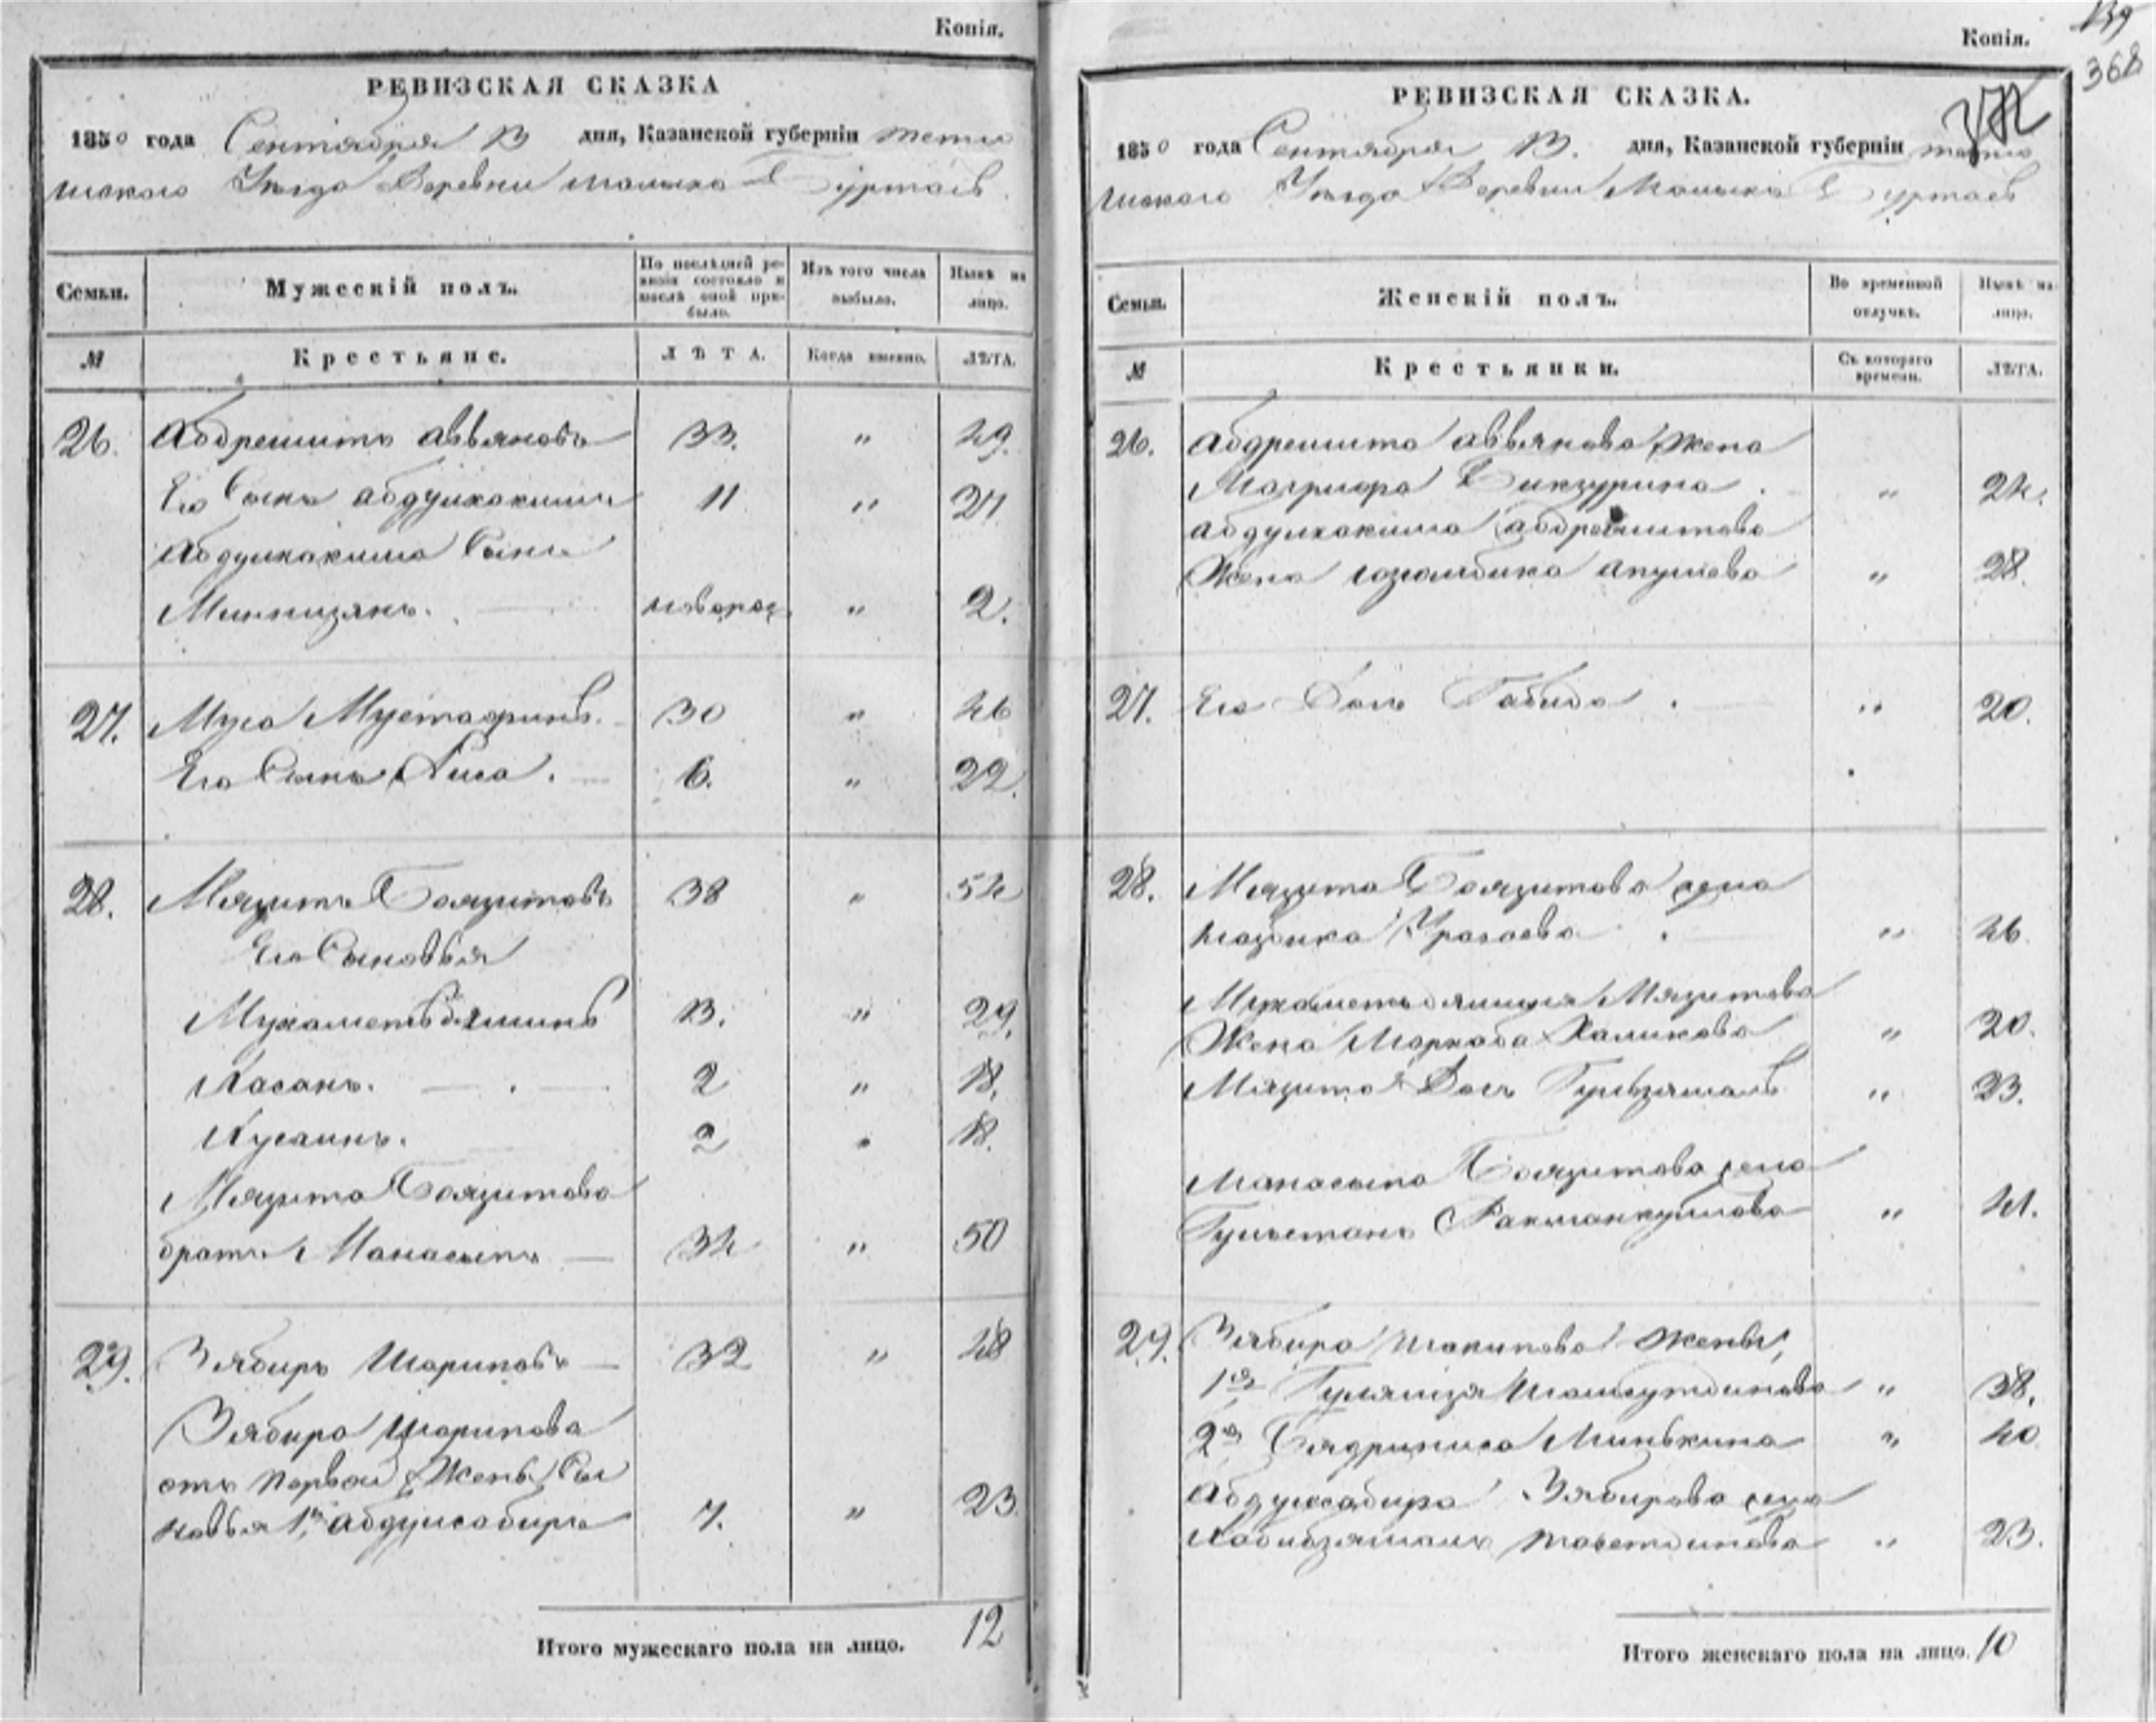 Копія.
РЕВИЗСКАЯ СКАЗКА
1850 года Сентября 13 дня, Казанской губерніи Тетю
шскаго Уѣзда Деревни Малыхъ Буртасъ.
Семьи. Мужескій полъ. По послѣдней ревизіи состояло и послѣ оной прибыло. Изъ того числа выбыло. Нынѣ на лицо.
№ Крестьяне. ЛѢТА. Когда именно. ЛѢТА.
26. Абдрешитъ Аввяновъ 33. " 49.
Его Сынъ Абдулхакимъ 11 " 27
Абдулхакима Сынъ
Миннизянъ. новорож " 2.
27. Муса Мустафинъ. 30 " 46
Его Сынъ Иса. 6. " 22.
28. Мязитъ Баязитовъ 38 " 54
Его Сыновья
Мухаметьвялишинъ 13. " 29.
Хасанъ. 2 " 18.
Хусаинъ. 2 " 18.
Мязита Баязитова
братъ Манасыпъ 34 " 50
29. Зябиръ Шариповъ 32 " 48
Зябира Шарипова
отъ первой Жены Сы
новья 1й Абдулсабиръ 7. " 23
Итого мужескаго пола на лицо. 12
Копія.
139
368
РЕВИЗСКАЯ СКАЗКА.
1850 года Сентября 13. дня, Казанской губерніи Тетю
шскаго Уѣзда Деревни Малыхъ Буртасъ
Семьи. Женскій полъ. Во временной отлучкѣ. Нынѣ на лицо.
№ Крестьянки. Съ котораго времени. ЛѢТА.
26. Абдрешита Аввянова Жена
Магруфа Бикчурина. " 24.
Абдулхакима Абдрешитова
Жена Апушева " 28.
27. Его Дочь Габида. " 20.
28. Мязита Баязитова жена
Уразаева. " 46
Мязитова
Жена Маркаба Халикова " 20.
Мязита Дочь Гульзямаль " 23.
Манасыпа Баязитова жена
Гульстанъ Рахманкулова " 41.
29. Зябира Шакипова Жены,
1я " 38.
2я Бядриниса Минькина " 40
Абдулсабира Зябирова жена
Хабибзямалъ Таветдинова " 23.
Итого женскаго пола на лицо. 10